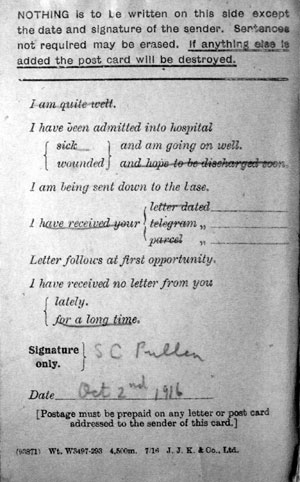 NOTHING is to be written on this side except
the date and signature of the sender. Sentences
not required may be erased. If anything else is
added the post card will be destroyed.
I am quite well.
I have been admitted into hospital
sick and am going on well.
wounded and hope to be discharged soon.
I am being sent down to the base.
letter dated
I have received your telegram „
parcel „
Letter follows at first opportunity.
I have received no letter from you
lately.
for a long time.
Signature only. S C Pullen
Date Oct 2nd 1916
[Postage must be prepaid on any letter or post card
addressed to the sender of this card.]
(93871) Wt. W3497-293 4,500m. 7/16 J. J. K. & Co., Ltd.